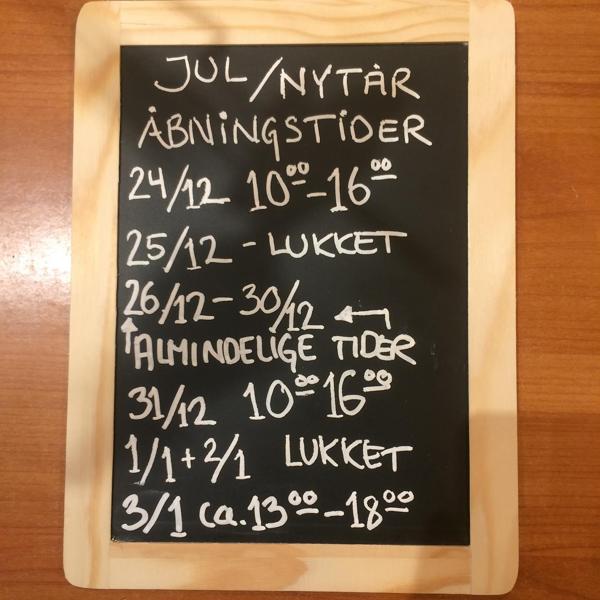 JUL/NYTÅR
ÅBNINGSTIDER
24/12 10⁰⁰-16⁰⁰
25/12 - LUKKET
26/12 - 30/12 ←
↑ALMINDELIGE TIDER
31/12 10⁰⁰ 16⁰⁰
1/1 + 2/1 LUKKET
3/1 ca. 13⁰⁰-18⁰⁰